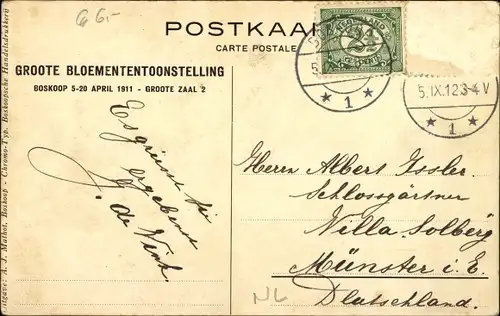 G 6,-
POSTKAA
CARTE POSTALE
GROOTE BLOEMENTENTOONSTELLING
BOSKOOP 5-20 APRIL 1911 - GROOTE ZAAL 2
Es grüsst Sie
ergebenst
J. de Vink.
5.IX.12.3-4 V
1
1
2½
Herrn Albert Issler
Schlossgärtner
Villa Solberg
Münster i. E.
Deutschland.
NL
Uitgave: A. J. Malhot, Boskoop - Chromo-Typ. Boskoopsche Handelsdrukkerij